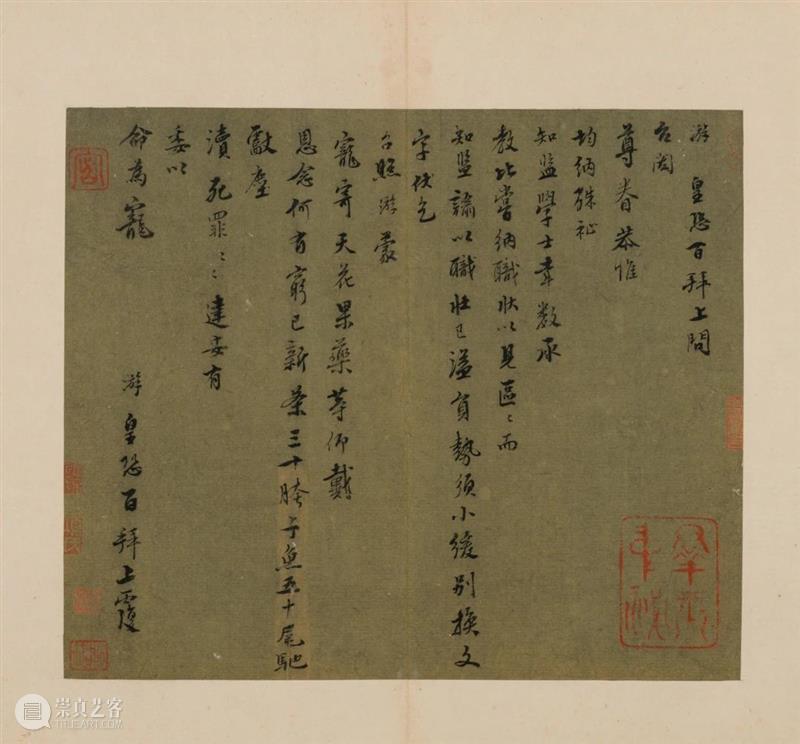 游皇恐百拜上問
台閤
尊眷恭惟
均納殊祉
知監學士幸數承
教比嘗納職狀以見區〻而
知監諭以職狀已溢員勢須小緩別換文
字伏乞
台照游蒙
寵寄天花果藥等仰戴
恩念何有窮已新茶三十胯子魚五十尾馳
獻塵
瀆死罪〻〻建安有
委以
命為寵
游皇恐百拜上覆
崇真艺客